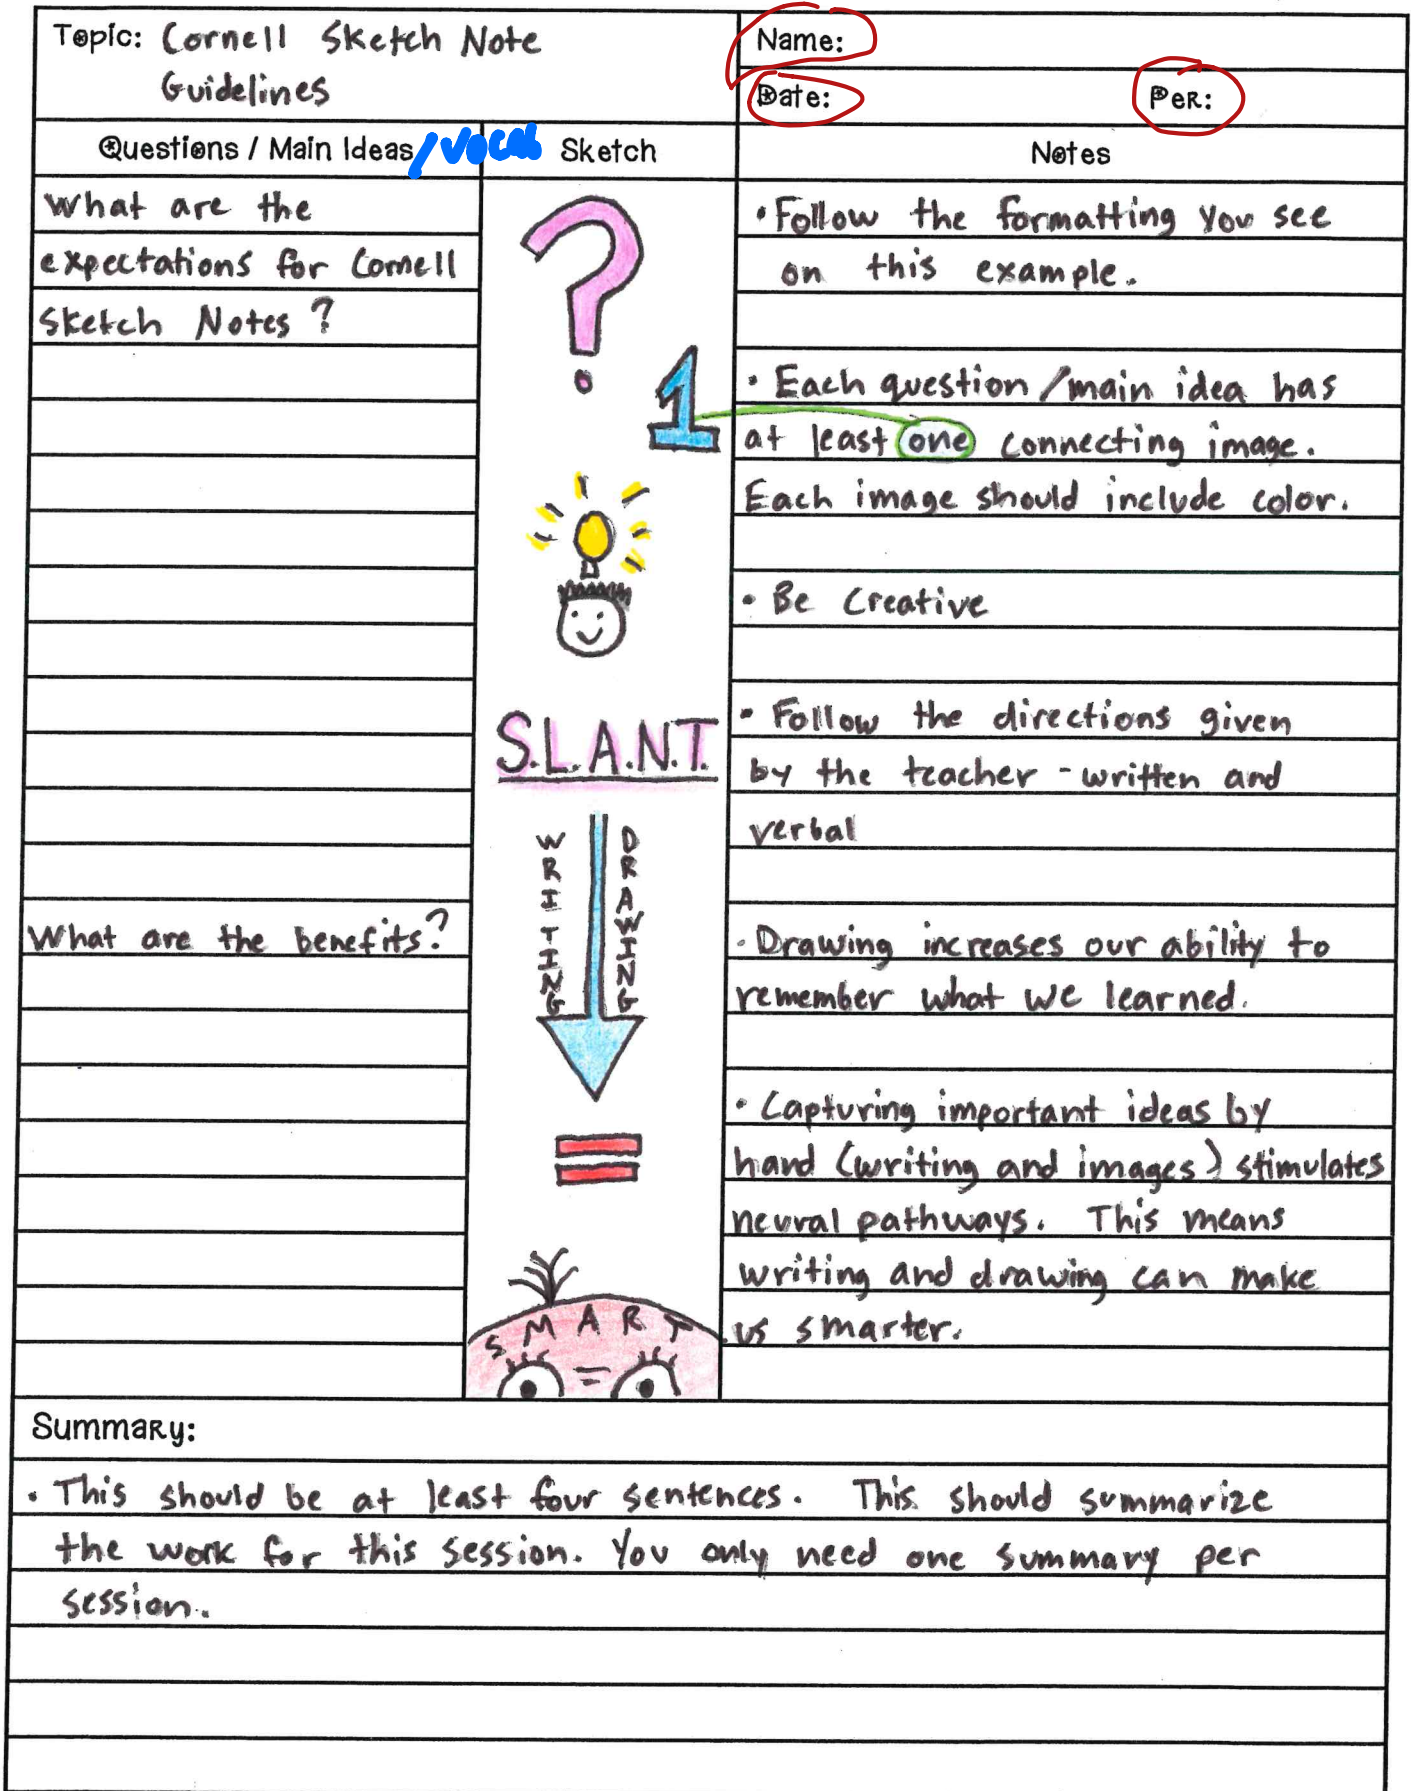 Topic: Cornell Sketch Note
Guidelines
Name:
Date: Per:
Questions / Main Ideas /vocab
Sketch
Notes
What are the
expectations for Cornell
Sketch Notes?
?
1
S.L.A.N.T.
WRITING
DRAWING
=
SMART
• Follow the formatting you see
on this example.
• Each question/main idea has
at least one connecting image.
Each image should include color.
• Be Creative
• Follow the directions given
by the teacher - written and
verbal
What are the benefits?
• Drawing increases our ability to
remember what we learned.
• Capturing important ideas by
hand (writing and images) stimulates
neural pathways. This means
writing and drawing can make
us smarter.
Summary:
• This should be at least four sentences. This should summarize
the work for this session. You only need one summary per
session.